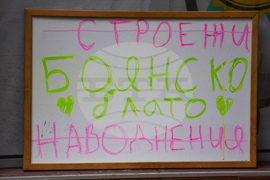 СТРОЕЖИ
БОЯНСКО
БЛАТО
НАВОДНЕНИЯ